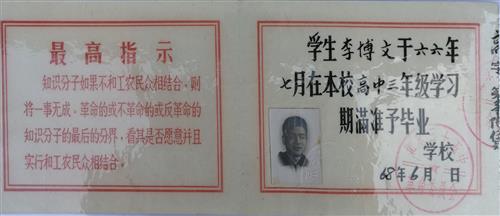 最高指示
知识分子如果不和工农民众相结合，则
将一事无成。革命的或不革命的或反革命的
知识分子的最后的分界，看其是否愿意并且
实行和工农民众相结合。
学生李博文于六六年
七月在本校高中三年级学习
期满准予毕业
学校
68年6月 日